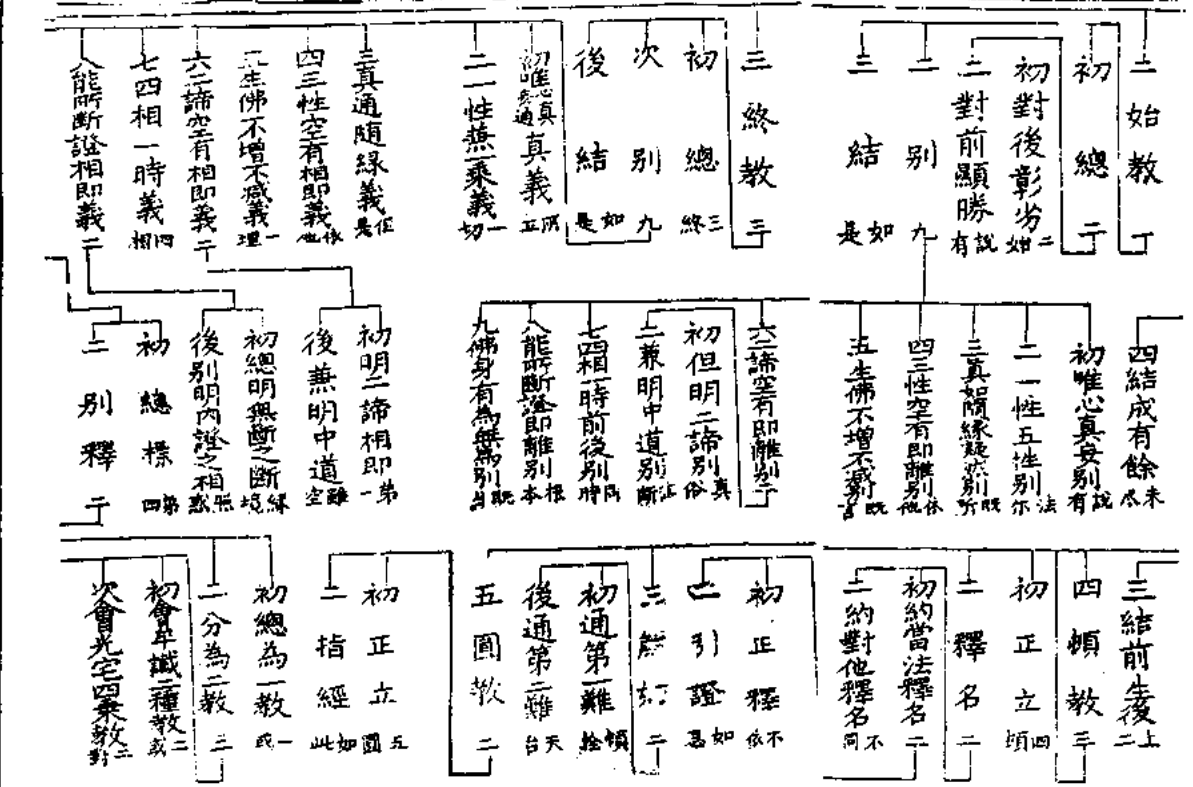 二始教二
初總二
初對後彰劣二如
二對前顯勝說有
二別九
三結如是
三終教三
初總三終
次別九
後結如是
初唯心真妄通真義所立
二一性兼一乘義一切
三真通隨緣義但是
四三性空有相即義依他
五生佛不增不減義一理
六二諦空有相即義二
七四相一時義四相
八能所斷證相即義二
四結成有餘未尽
初唯心真妄別說有
二一性五性別法尔
三真如隨緣凝然別既所
四三性空有即離別依他
五生佛不增不減別既言
六二諦空有即離別二
初但明二諦別真俗
二兼明中道別斷
七四相一時前後別同時
八能所斷證即離別根本
九佛身有為無為別既
初明二諦相即第一
後兼明中道雖空
初總明無斷之斷緣境
後別明內證之相照惑
初總標第四
二別釋二
三結前生後上二
四頓教三
初正立四頓
二釋名二
初約當法釋名二
二約對他釋名不同
初正釋不依
二引證如
三二
初通第一難頓
後通第二難天台
五圓教二
初正立五圓
二指經如此
初總為一教一或
二分為二教三
初會半讖二種教二或
次會光宅四乘教二對